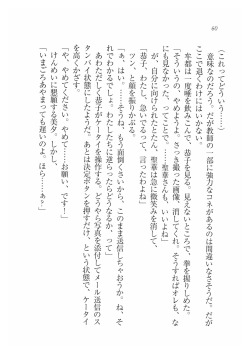 60
（これってどういう……？）
意味なのだろう。だが教師の一部に強力なコネがあるのは間違いなさそうだ。だが
ここで退くわけにはいかない。
牟都は一度唾を飲みこんで、恭子を見る。見えないところで、拳を握りしめた。
「そういうの、やめようよ。さっき撮った画像、消してくれ。そうすればオレも、な
にも見なかった、つってことで……聖華さんも、いいよね」
が、自分に向けられたとたん、聖華は急に微笑みを消して、
「恭子、わたしに命令するって、言ったわよね」
ツン、と顔を振りかぶる。
「あ、はい。……そうね、もう面倒くさいから、このまま送信しちゃおうか。ね、そ
れでわかるでしょ。わたしたちに逆らったらどうなるか。ね」
あわただしく恭子がケータイを操作する。どうやら写真を添付してメール送信のス
タンバイ状態にしたようだ。あとは決定ボタンを押すだけ、という状態で、ケータイ
を高くかざす。
「や、やめてください。やめて………お願い、です！」
けんめいに懇願する美夕。しかし、
「いまごろあやまっても遅いのよ。ほら……あぁ」